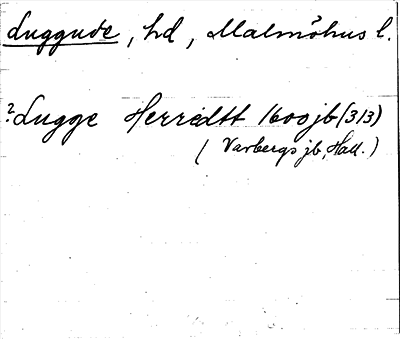 Luggude, hd, Malmöhus l.
? Lugge Herredtt 1600 jb (313)
(Varbergs jb, Hall.)